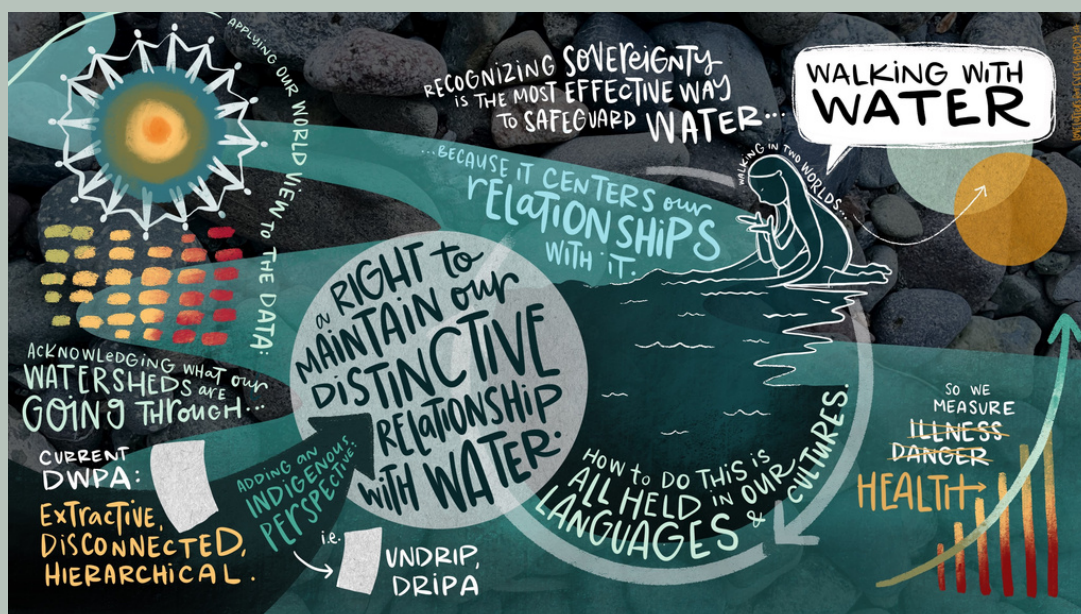 APPLYING OUR WORLD VIEW TO THE DATA:
RECOGNIZING SOVEREIGNTY
IS THE MOST EFFECTIVE WAY
TO SAFEGUARD WATER...
WALKING WITH
WATER
...BECAUSE IT CENTERS our
RELATIONSHIPS
WITH IT.
WALKING IN TWO WORLDS...
a RIGHT to
MAINTAIN our
DISTINCTIVE
RELATIONSHIP
with WATER:
ACKNOWLEDGING WHAT our
WATERSHEDS are
GOING THROUGH...
CURRENT
DWPA:
EXTRACTIVE,
DISCONNECTED,
HIERARCHICAL.
ADDING AN
INDIGENOUS
PERSPECTIVE:
i.e.
UNDRIP,
DRIPA
HOW to DO THIS IS
ALL HELD IN OUR
LANGUAGES & CULTURES.
SO WE
MEASURE
ILLNESS
DANGER
HEALTH